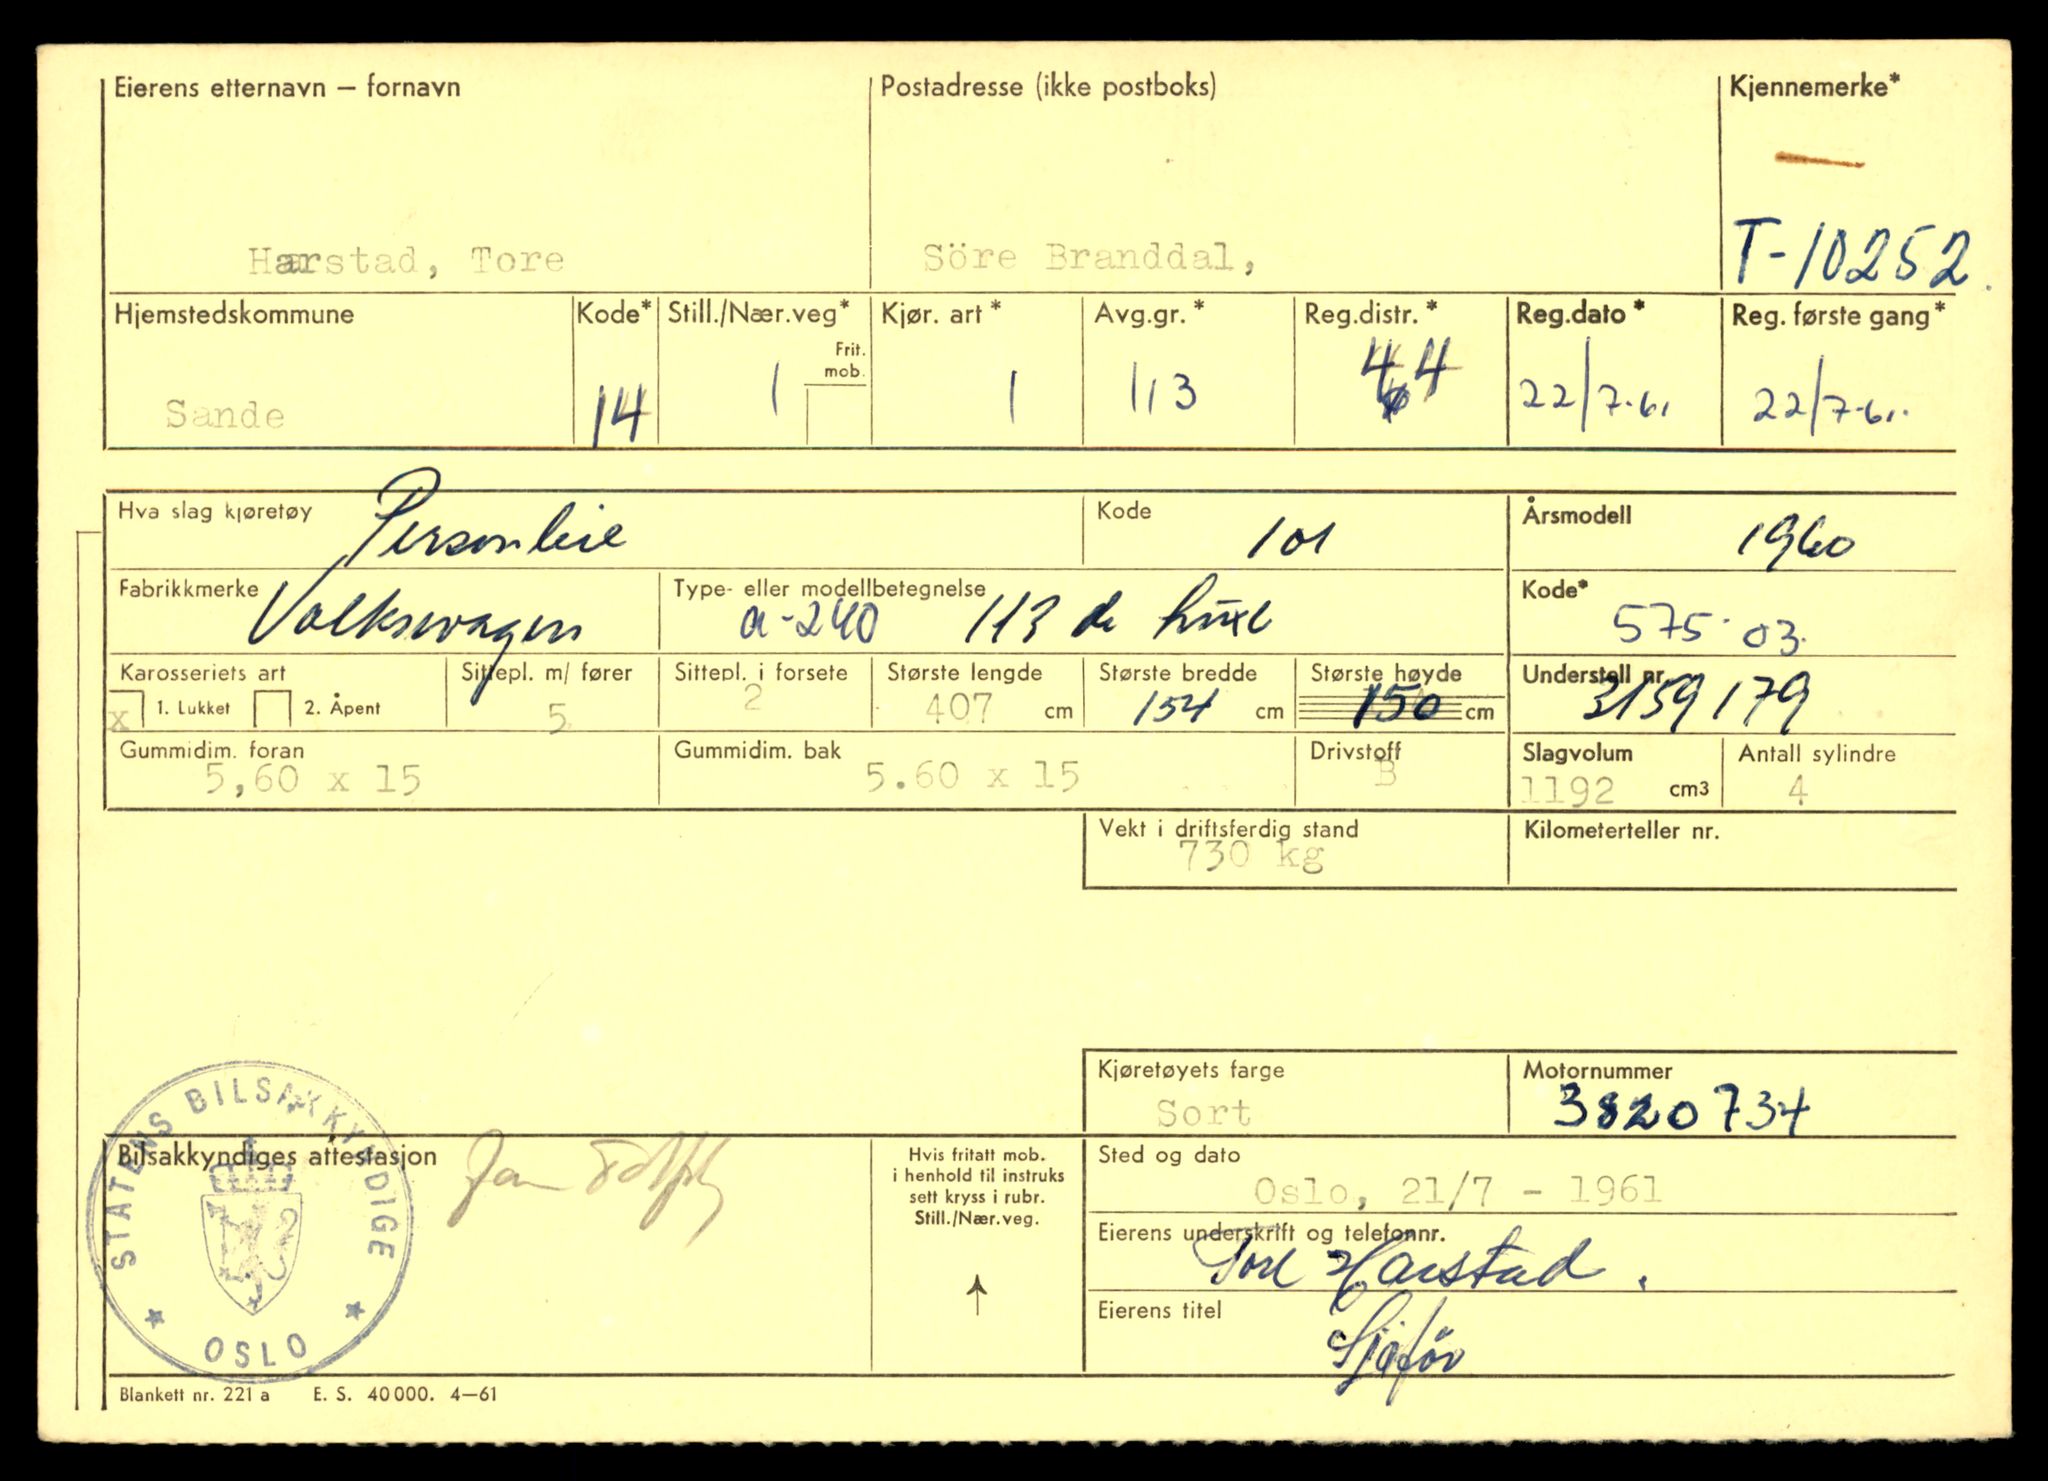 Eierens etternavn – fornavn Postadresse (ikke postboks) Kjennemerke*
Harstad, Tore Söre Branddal, T-10252
Hjemstedskommune Kode* Still./Nær.veg* Frit. mob. Kjør. art* Avg.gr.* Reg.distr.* Reg.dato* Reg. første gang*
Sande 14 1 1 113 44 22/7-61 22/7-61.
Hva slag kjøretøy Personbil Kode 101 Årsmodell 1960
Fabrikkmerke Volkswagen Type- eller modellbetegnelse a-240 113 de luxe Kode* 575 03.
Karosseriets art Sittepl. m/ fører Sittepl. i forsete Største lengde Største bredde Største høyde Understell nr.
x 1. Lukket 2. Åpent 5 2 407 cm 154 cm 150 cm 3159179
Gummidim. foran Gummidim. bak Drivstoff Slagvolum Antall sylindre
5,60 x 15 5.60 x 15 B 1192 cm3 4
Vekt i driftsferdig stand Kilometerteller nr.
730 kg
Kjøretøyets farge Motornummer
Sort 3820734
STATENS BILSAKKYNDIGE
OSLO
Bilsakkyndiges attestasjon
Hvis fritatt mob.
i henhold til instruks
sett kryss i rubr.
Still./Nær.veg.
Sted og dato
Oslo, 21/7 - 1961
Eierens underskrift og telefonnr.
Tore Harstad.
Eierens titel
Sjåför
Blankett nr. 221 a E. S. 40 000. 4—61